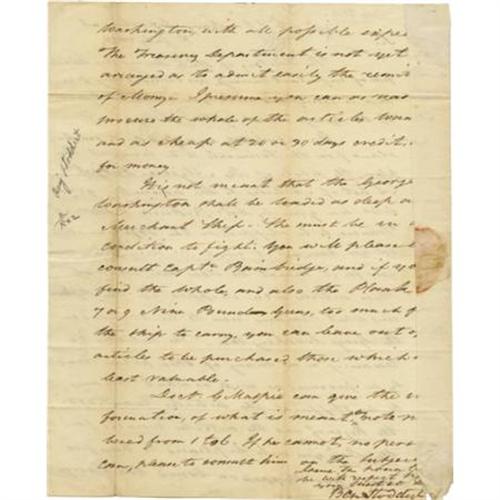 Washington, with all possible expe
The Treasury Department is not yet
arranged as to admit easily the remit
of Money. I presume you can as
procure the whole of the articles
and as cheap at 20 or 30 days credit,
for money
It is not meant that the George
Washington shall be loaded as deep a
Merchant Ship. She must be in
condition to fight. You will please
consult Capt. Bainbridge, and if yo
find the whole, and also the Plank
7 or 9 Nine Pounder Guns, too much f
the ship to carry, you can leave out o
articles to be purchased those which
least valuable.
Doct. Gillaspie can give the
formation, of what is meant note
bered from 1 to 6. If he cannot, no pers
can, please to consult him on the subject
I have the honor
Ben Stoddert
Benj Stoddert